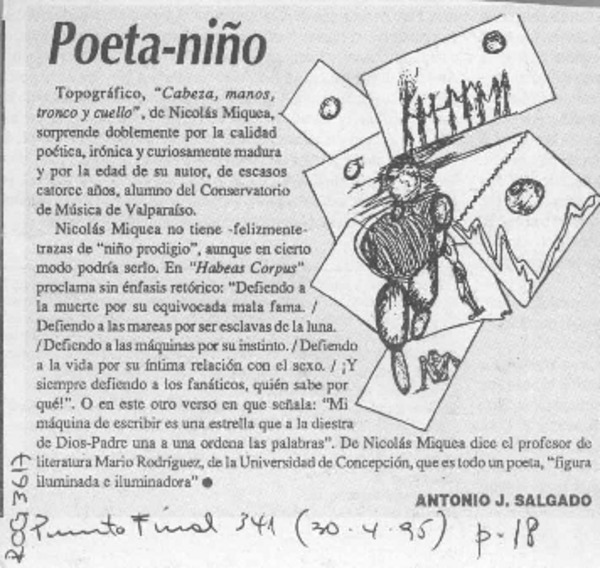 Poeta-niño
Topográfico, "Cabeza, manos,
tronco y cuello", de Nicolás Miquea,
sorprende doblemente por la calidad
poética, irónica y curiosamente madura
y por la edad de su autor, de escasos
catorce años, alumno del Conservatorio
de Música de Valparaíso.
Nicolás Miquea no tiene -felizmente-
trazas de "niño prodigio", aunque en cierto
modo podría serlo. En "Habeas Corpus"
proclama sin énfasis retórico: "Defiendo a
la muerte por su equivocada mala fama. /
Defiendo a las mareas por ser esclavas de la luna.
/Defiendo a las máquinas por su instinto. / Defiendo
a la vida por su íntima relación con el sexo. / ¡Y
siempre defiendo a los fanáticos, quién sabe por
qué!". O en este otro verso en que señala: "Mi
máquina de escribir es una estrella que a la diestra
de Dios-Padre una a una ordena las palabras". De Nicolás Miquea dice el profesor de
literatura Mario Rodríguez, de la Universidad de Concepción, que es todo un poeta, "figura
iluminada e iluminadora" ●
ANTONIO J. SALGADO
Punto Final 341 (30.4.95) p.18
ROG 3617